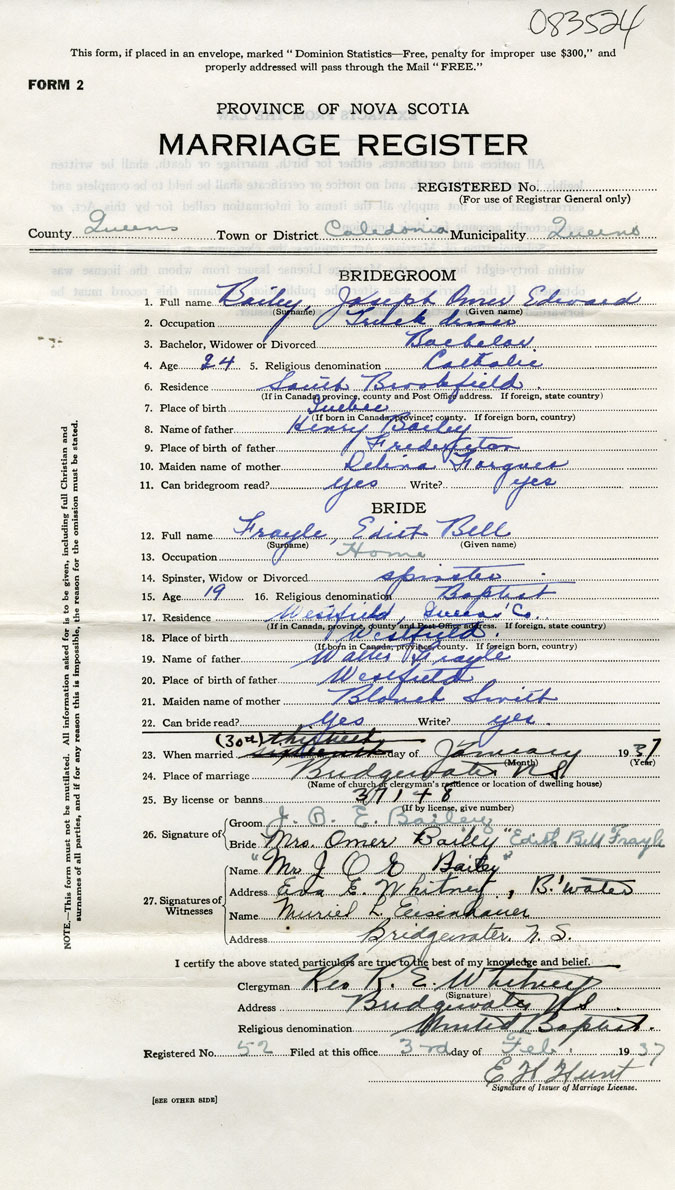 083524
This form, if placed in an envelope, marked "Dominion Statistics—Free, penalty for improper use $300," and
properly addressed will pass through the Mail "FREE."
FORM 2
PROVINCE OF NOVA SCOTIA
MARRIAGE REGISTER
REGISTERED No.
(For use of Registrar General only)
County Queens Town or District Caledonia Municipality Queens
BRIDEGROOM
1. Full name Bailey, Joseph Omer Edward
(Surname) (Given name)
2. Occupation Truck driver
3. Bachelor, Widower or Divorced Bachelor
4. Age 24 5. Religious denomination Catholic
6. Residence South Brookfield
(If in Canada, province, county and Post Office address. If foreign, state country)
7. Place of birth Quebec
(If born in Canada, province, county. If foreign born, country)
8. Name of father Henry Bailey
9. Place of birth of father Fredericton
10. Maiden name of mother Forgues
11. Can bridegroom read? yes Write? yes
BRIDE
12. Full name Frayle, Edith Bell
(Surname) (Given name)
13. Occupation Home
14. Spinster, Widow or Divorced spinster
15. Age 19 16. Religious denomination Baptist
17. Residence Westfield, Queens' Co.
(If in Canada, province, county and Post Office address. If foreign, state country)
18. Place of birth Westfield.
(If born in Canada, province, county. If foreign born, country)
19. Name of father Walter Frayle
20. Place of birth of father Westfield
21. Maiden name of mother Blanch Smith
22. Can bride read? Yes Write? yes.
(30th) thirtieth
23. When married day of January 1937
(Month) (Year)
24. Place of marriage Bridgewater NS
(Name of church or clergyman's residence or location of dwelling house)
25. By license or banns 37148
(If by license, give number)
26. Signature of
Groom J. O. E. Bailey
Bride Mrs. Omer Bailey "Edith Bell Frayle
27. Signatures of Witnesses
Name "Mr J O E Bailey"
Address Eva E. Whitney, B'water
Name Muriel L. Eisenhauer
Address Bridgewater, N. S.
I certify the above stated particulars are true to the best of my knowledge and belief.
Clergyman Rev R. E. Whitney
(Signature)
Address Bridgewater NS.
Religious denomination United Baptist.
Registered No. 52 Filed at this office 3rd day of Feb. 1937
E H Hunt
Signature of Issuer of Marriage License.
[SEE OTHER SIDE]
NOTE.—This form must not be mutilated. All information asked for is to be given, including full Christian and
surnames of all parties, and if for any reason this is impossible, the reason for the omission must be stated.